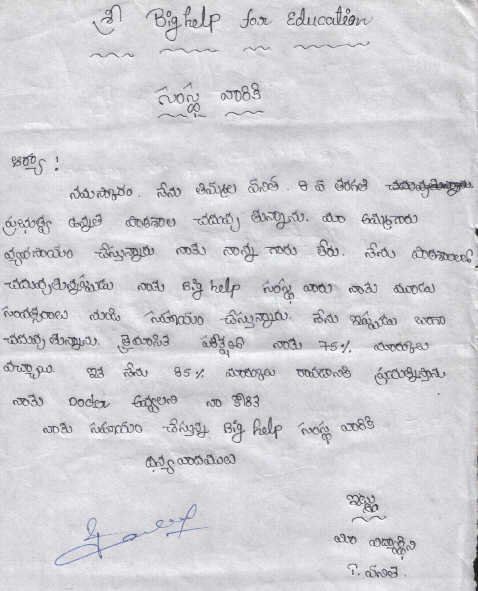 శ్రీ Big help for Education
సంస్థ వారికి
ఆర్యా !
నమస్కారం. నేను తిమ్మల వనిత. 8 వ తరగతి
ప్రభుత్వ ఉన్నత పాఠశాల చదువు తున్నాను. మా అమ్మగారు
వ్యవసాయం చేస్తున్నారు నాకు నాన్న గారు లేరు. నేను పాఠశాలలో
చదువుతున్నప్పుడు నాకు Big help సంస్థ వారు నాకు మూడు
సంవత్సరాలు నుండి సహాయం చేస్తున్నారు. నేను ఇప్పుడు బాగా
చదువు తున్నాను. త్రైమాసిక పరీక్షలో నాకు 75% మార్కులు
వచ్చాయి. ఇక నేను 85% మార్కులు రావడానికి ప్రయత్నిస్తాను
నాకు Docter అవ్వాలని నా కోరిక
నాకు సహాయం చేస్తున్న Big help సంస్థ వారికి
ధన్య వాదములు
ఇట్లు
మీ విద్యార్థిని
T. వనిత.